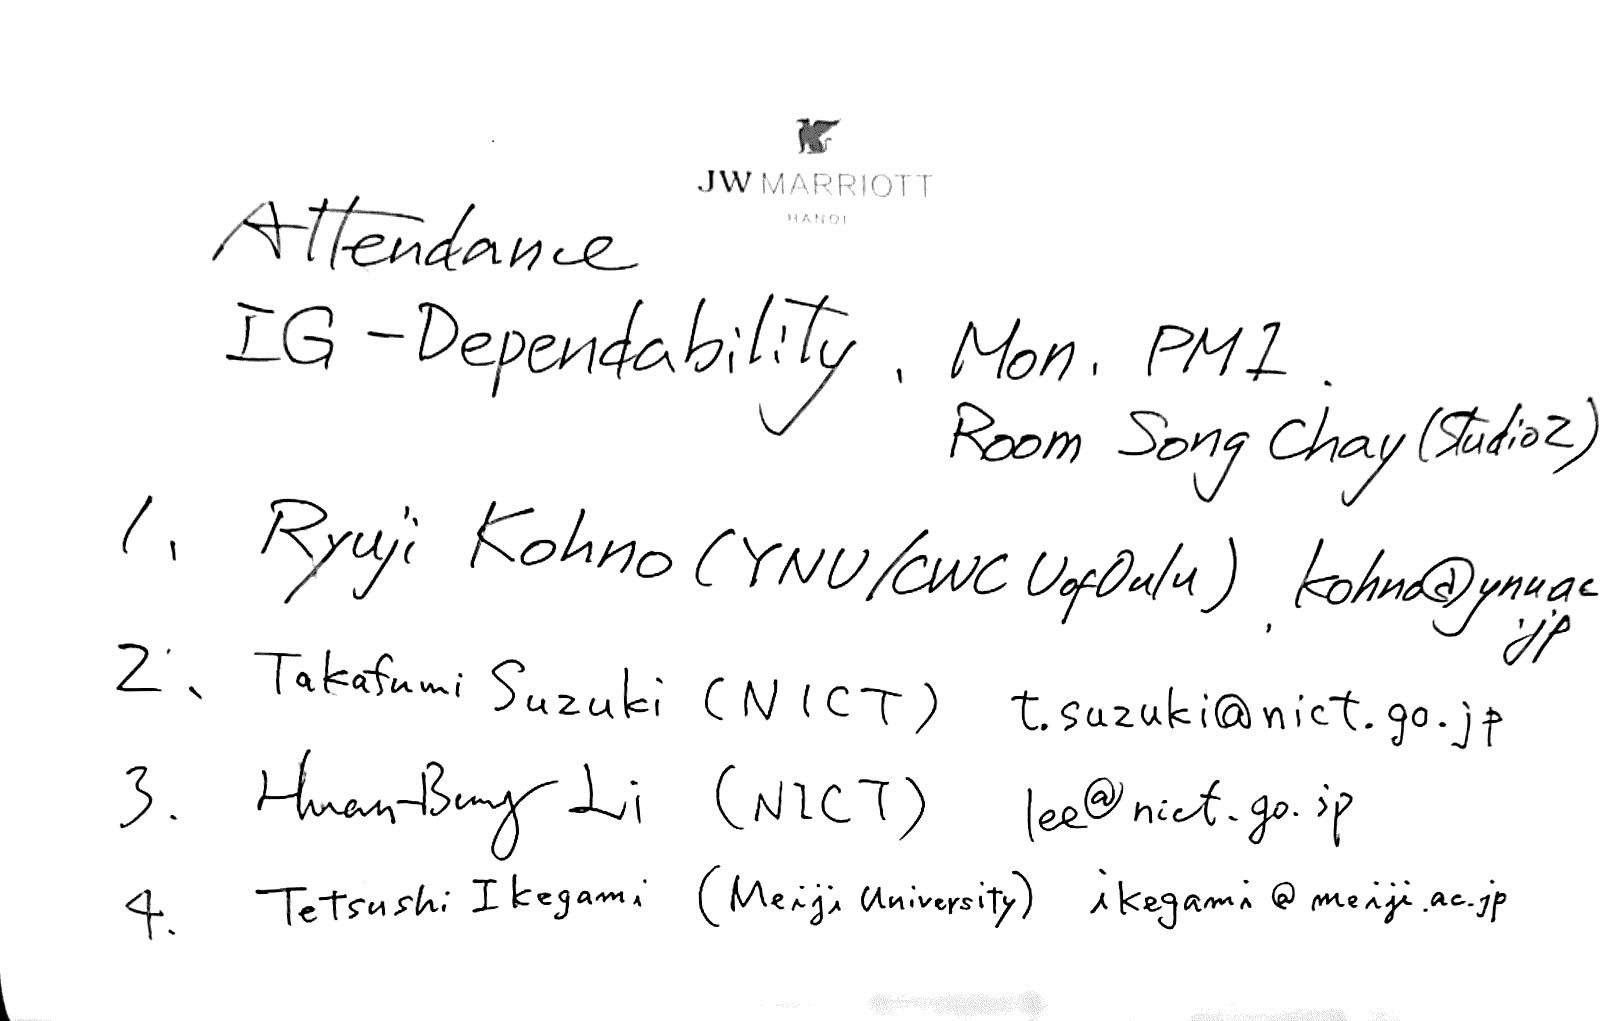 JW MARRIOTT
HANOI
Attendance
IG-Dependability, Mon. PM1.
Room Song Chay (Studio2)
1. Ryuji Kohno (YNU/CWC UofOulu), kohno@ynu.ac
.jp
2. Takafumi Suzuki (NICT) t.suzuki@nict.go.jp
3. Huan-Bang Li (NICT) lee@nict.go.jp
4. Tetsushi Ikegami (Meiji University) ikegami@meiji.ac.jp